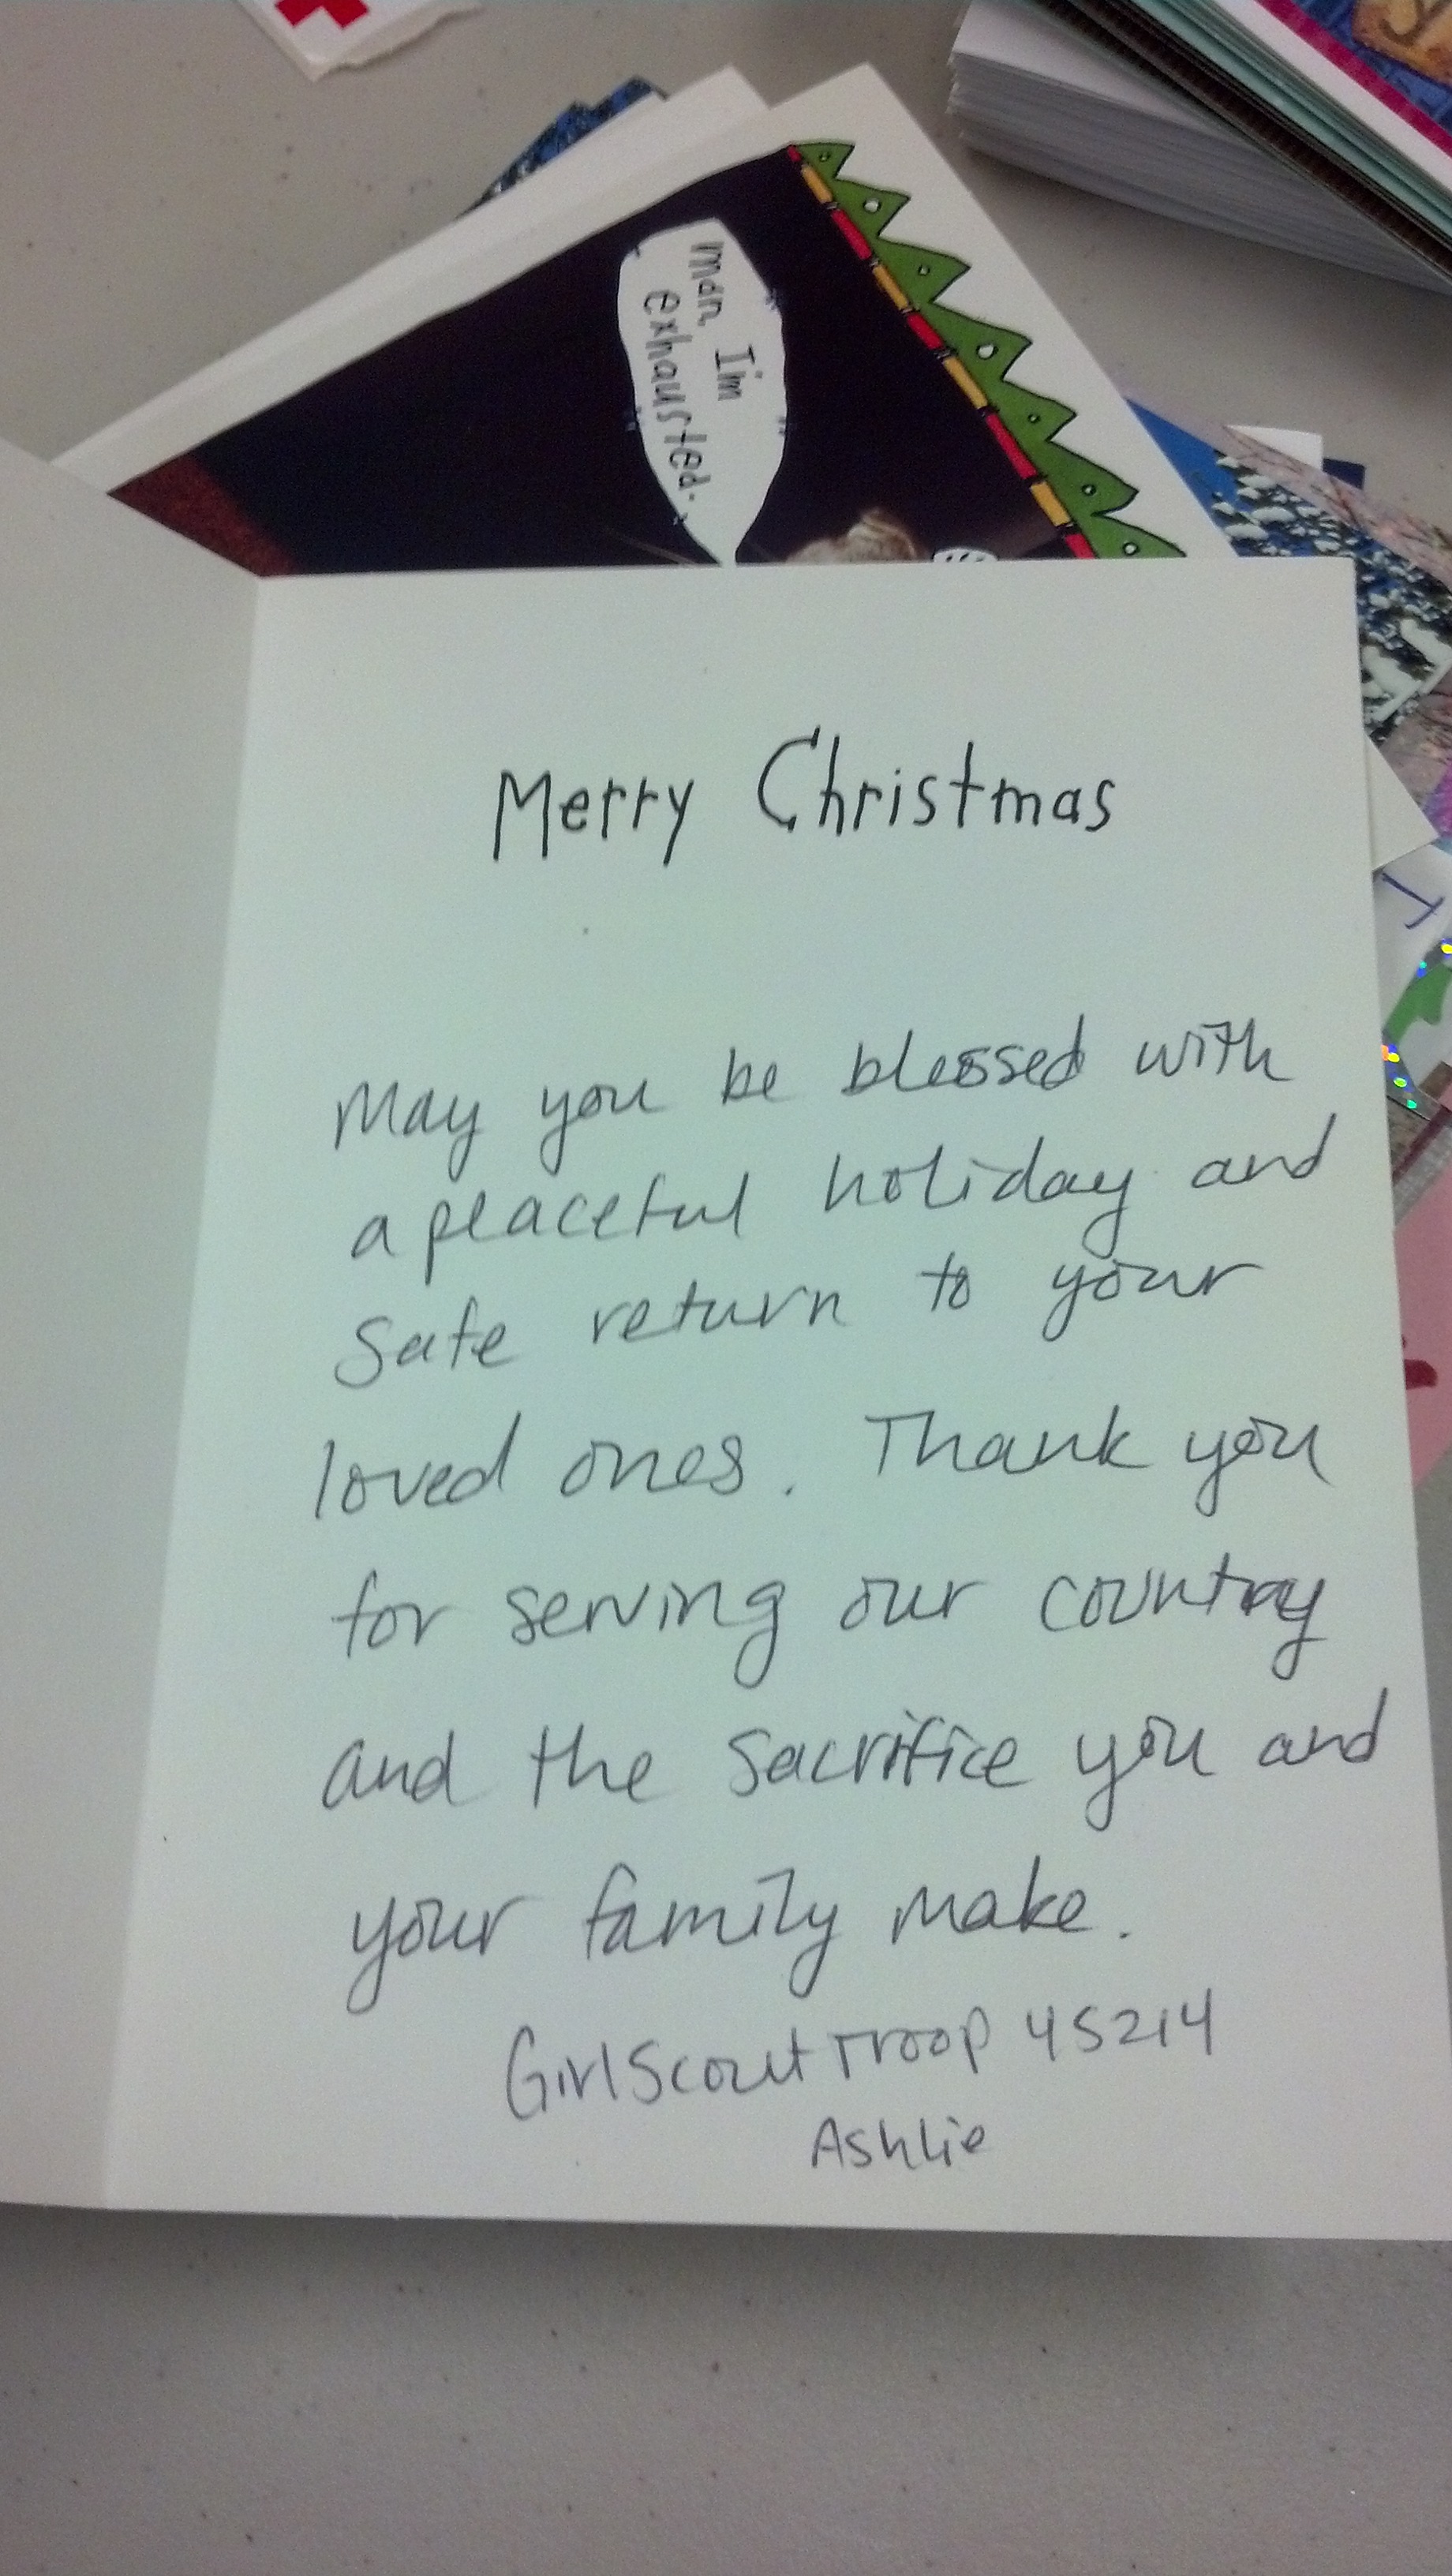 man, I'm
exhausted.
Merry Christmas
May you be blessed with
a peaceful holiday and
safe return to your
loved ones. Thank you
for serving our country
and the sacrifice you and
your family make.
Girl Scout Troop 45214
Ashlie